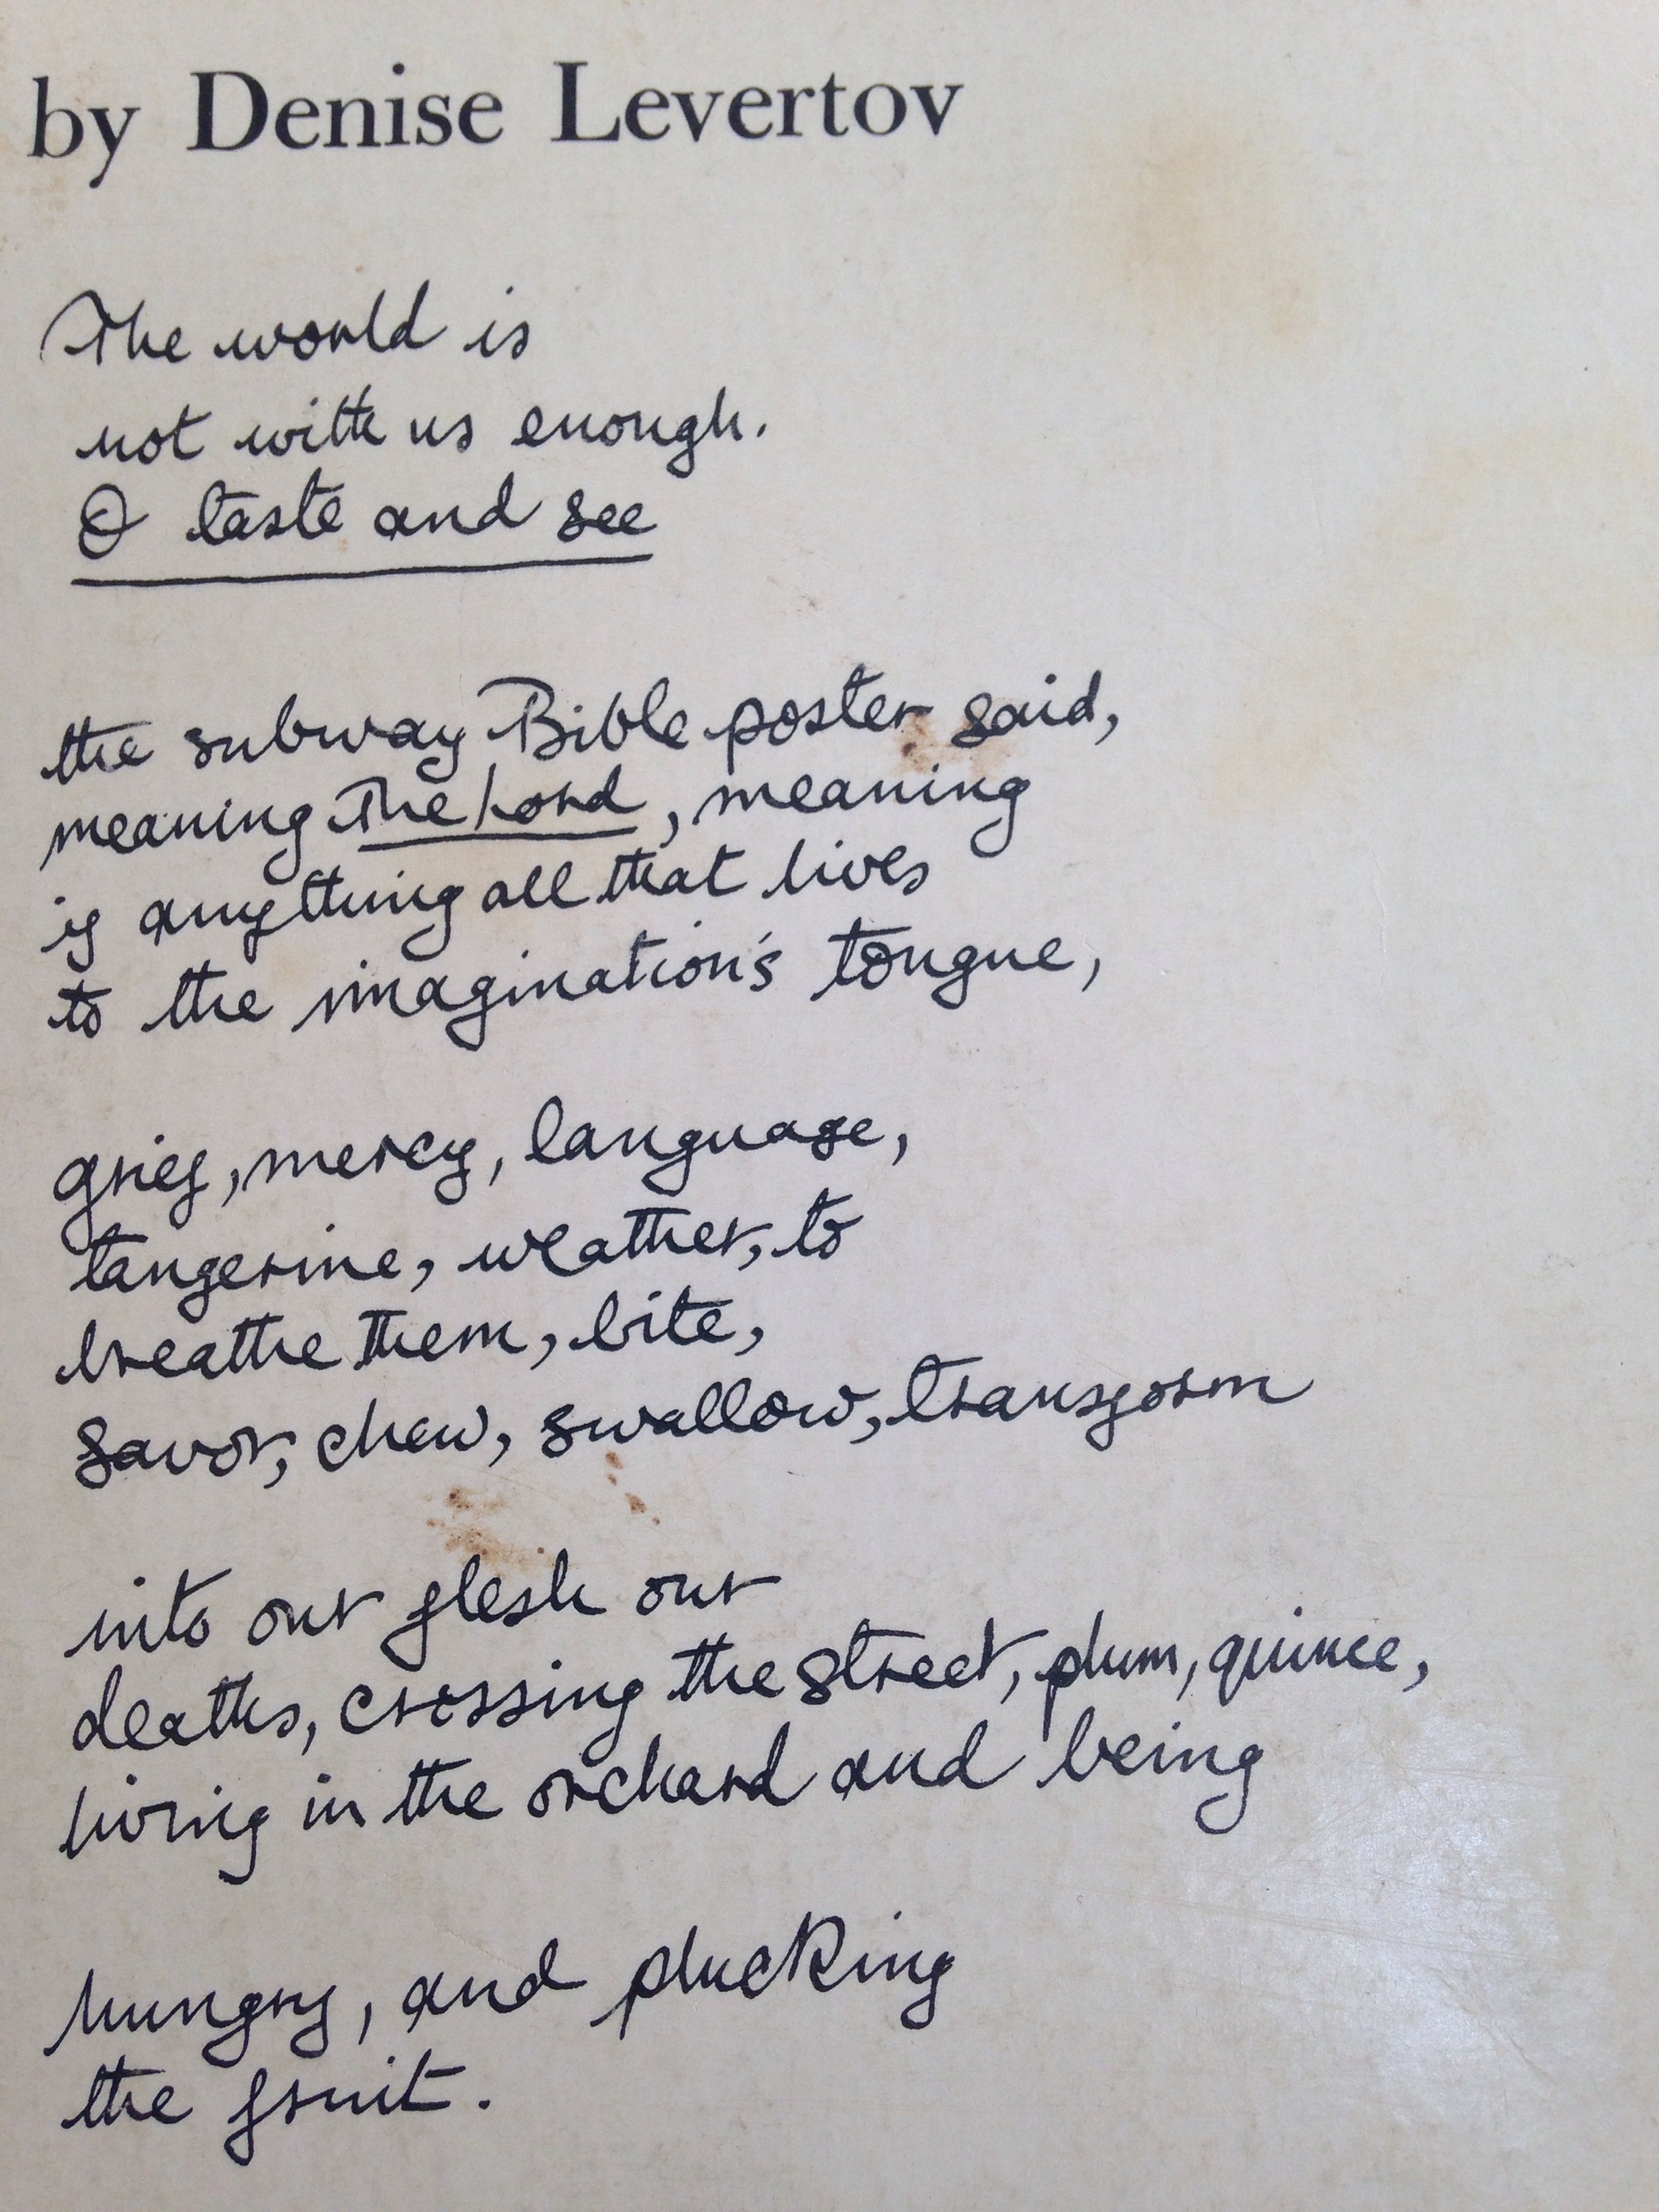 by Denise Levertov
The world is
not with us enough.
O taste and see
the subway Bible poster said,
meaning The Lord, meaning
if anything all that lives
to the imagination's tongue,
grief, mercy, language,
tangerine, weather, to
breathe them, bite,
savor, chew, swallow, transform
into our flesh our
deaths, crossing the street, plum, quince,
living in the orchard and being
hungry, and plucking
the fruit.